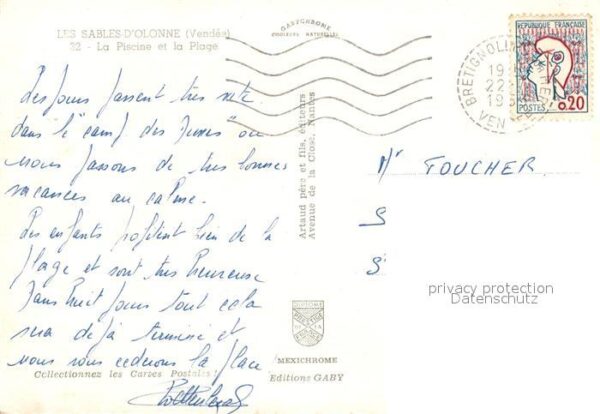 LES SABLES-D'OLONNE (Vendée)
32 - La Piscine et la Plage
GABYCHROME
COULEURS NATURELLES
BRETIGNOLL
19
22
19
VEN
REPUBLIQUE FRANÇAISE
POSTES 0,20
Les jours passent très vite
dans le "camp des Russes" où
nous passons de très bonnes
vacances au calme.
Les enfants profitent bien de la
plage et sont très heureuse
Dans huit jours tout cela
sera déjà terminé et
nous vous cederons la place
Collectionnez les Cartes Postales !
Artaud père et fils, éditeurs
Avenue de la Close, Nantes
MEXICHROME
Editions GABY
Mr FOUCHER
S
S
privacy protection
Datenschutz